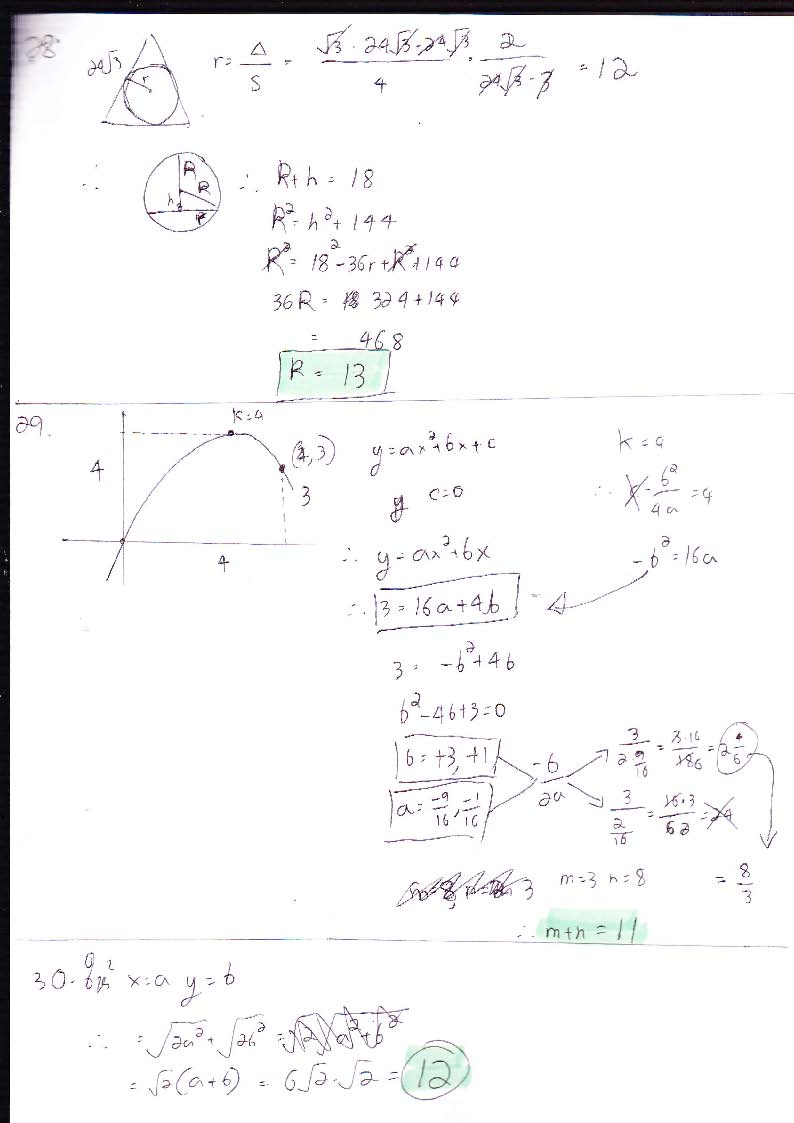 28
24√3 r r = Δ/S = (√3 · 24√3 · 24√3)/4 · 2/(24√3 · 3) = 12
∴ R R h r ∴ R + h = 18
R² = h² + 144
R² = 18² - 36r + R² + 144
36R = 324 + 144
= 468
R = 13
29.
k=4
4
(4, 3)
3
4
y = ax² + bx + c
y c = 0
∴ y = ax² + bx
∴ 3 = 16a + 4b
3 = -b² + 4b
b² - 4b + 3 = 0
b = +3, +1
a = -9/16, -1/16
-b/2a
3/(2 9/16) = 3·16/186 = 2 4/6
3/(2/16) = 16·3/62 = 24
k = 4
∴ k - b²/4a = 4
-b² = 16a
= 8/3
m=3 n=8
∴ m+n = 11
30. x=a y=b
∴ = √2a² + √2b² = √2 √a²+b²
= √2(a+b) = 6√2·√2 = 12